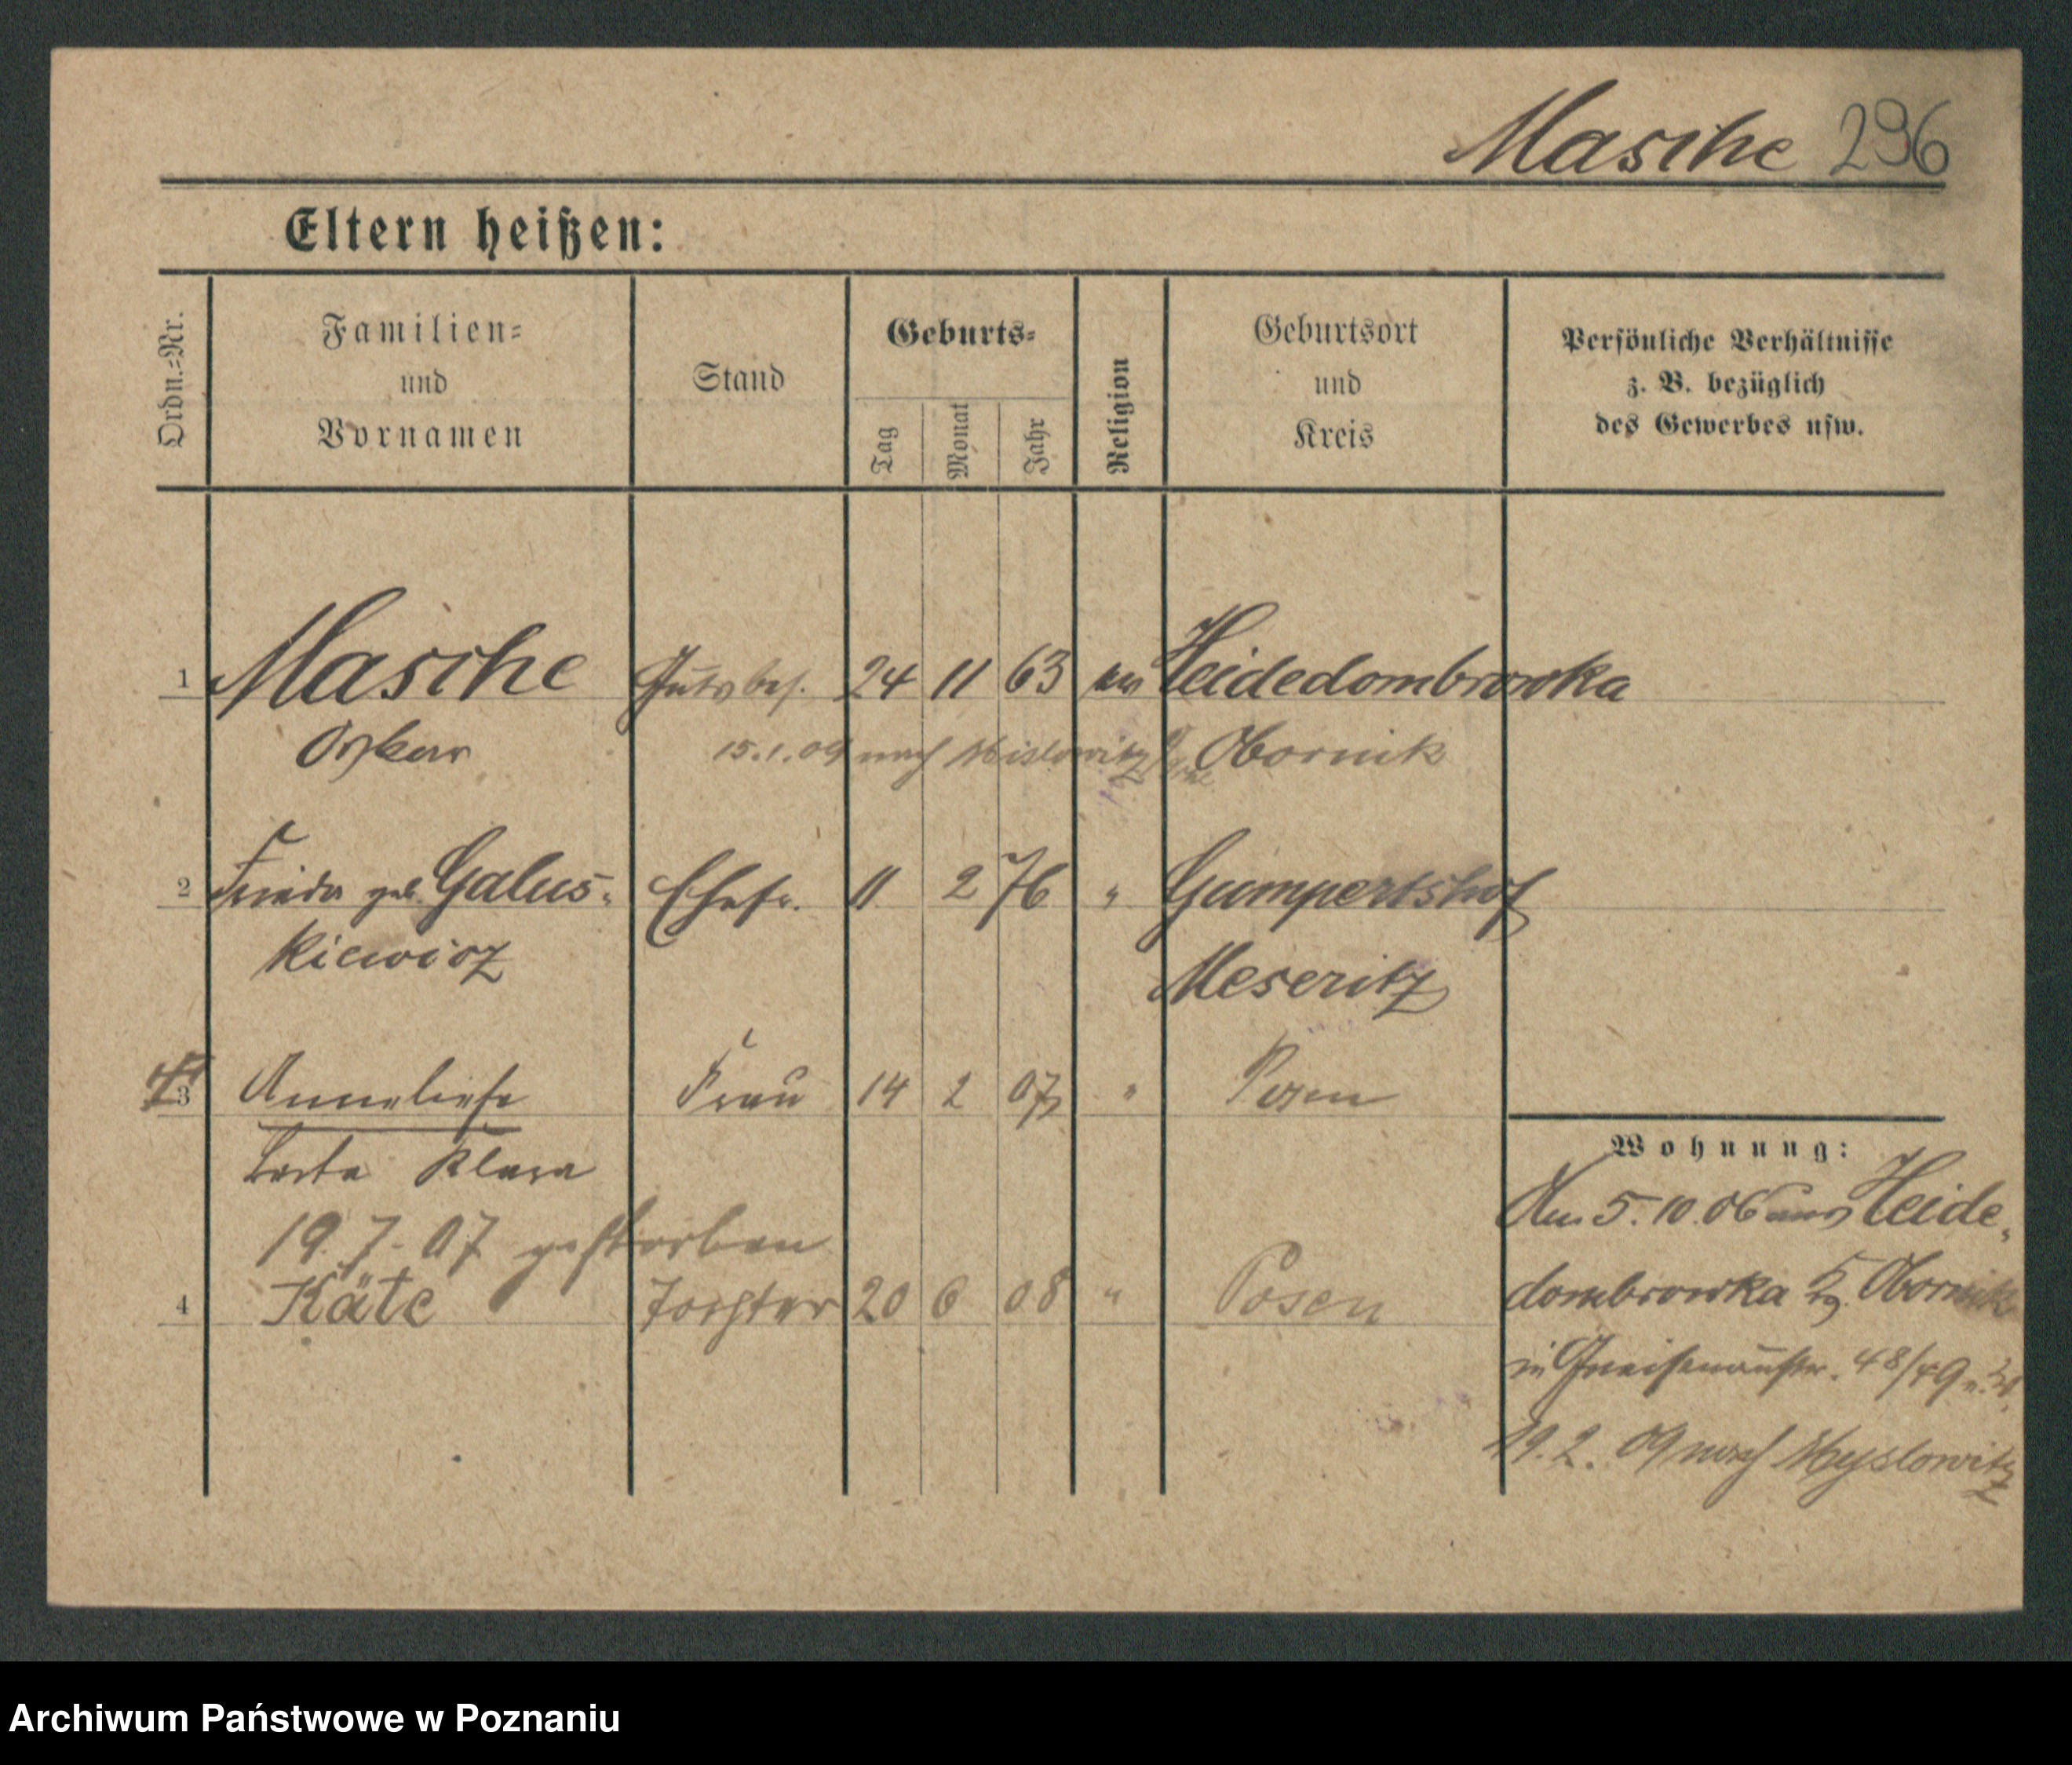 Masche 296
Eltern heißen:
Ordn.-Nr.
Familien-
und
Vornamen
Stand
Geburts-
Tag
Monat
Jahr
Religion
Geburtsort
und
Kreis
Persönliche Verhältnisse
z. B. bezüglich
des Gewerbes usw.
1 Masche Gutsbes. 24 11 63 ev Heidedombrowka
Oskar 15.1.09 nach Mislowitz Obornik
2 Frieda geb. Galus- Ehefr. 11 2 76 " Gumpertshof
kiewicz Meseritz
3 Anneliese 14 2 07 " Posen
Berta Klara
19.7.07 gestorben
4 Käte Tochter 20 6 08 " Posen
Wohnung:
Am 5.10.06 aus Heide-
dombrowka Obornik
in Gneisenaustr. 48/49
19.2.09 nach Myslowitz
Archiwum Państwowe w Poznaniu